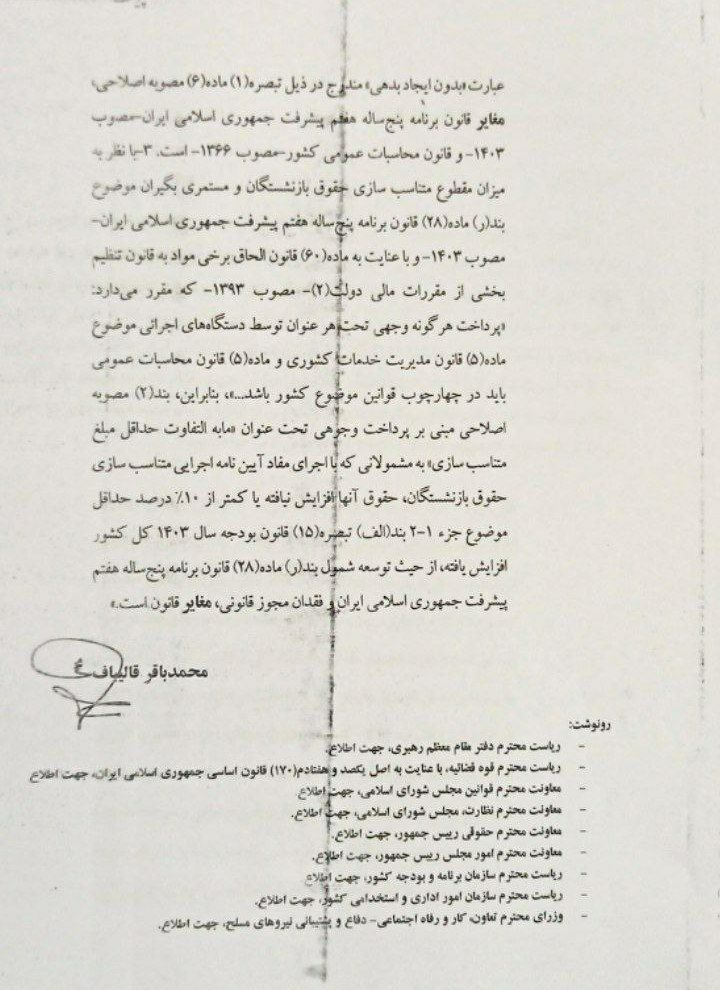 عبارت «بدون ایجاد بدهی» مندرج در ذیل تبصره(۱) ماده(۶) مصوبه اصلاحی،
مغایر قانون برنامه پنج‌ساله هفتم پیشرفت جمهوری اسلامی ایران-مصوب
۱۴۰۳- و قانون محاسبات عمومی کشور-مصوب ۱۳۶۶- است. ۳-با نظر به
میزان مقطوع متناسب سازی حقوق بازنشستگان و مستمری بگیران موضوع
بند(ر) ماده(۲۸) قانون برنامه پنج‌ساله هفتم پیشرفت جمهوری اسلامی ایران-
مصوب ۱۴۰۳- و با عنایت به ماده(۶۰) قانون الحاق برخی مواد به قانون تنظیم
بخشی از مقررات مالی دولت(۲)- مصوب ۱۳۹۳- که مقرر می‌دارد:
«پرداخت هرگونه وجهی تحت هر عنوان توسط دستگاه‌های اجرائی موضوع
ماده(۵) قانون مدیریت خدمات کشوری و ماده(۵) قانون محاسبات عمومی
باید در چهارچوب قوانین موضوع کشور باشد...»، بنابراین، بند(۲) مصوبه
اصلاحی مبنی بر پرداخت وجوهی تحت عنوان «مابه التفاوت حداقل مبلغ
متناسب سازی» به مشمولانی که با اجرای مفاد آیین نامه اجرایی متناسب سازی
حقوق بازنشستگان، حقوق آنها افزایش نیافته یا کمتر از ۱۰٪ درصد حداقل
موضوع جزء ۱-۲ بند(الف) تبصره(۱۵) قانون بودجه سال ۱۴۰۳ کل کشور
افزایش یافته، از حیث توسعه شمول بند(ر) ماده(۲۸) قانون برنامه پنج‌ساله هفتم
پیشرفت جمهوری اسلامی ایران و فقدان مجوز قانونی، مغایر قانون است.»
محمدباقر قالیباف
رونوشت:
- ریاست محترم دفتر مقام معظم رهبری، جهت اطلاع.
- ریاست محترم قوه قضائیه، با عنایت به اصل یکصد و هفتادم(۱۷۰) قانون اساسی جمهوری اسلامی ایران، جهت اطلاع
- معاونت محترم قوانین مجلس شورای اسلامی، جهت اطلاع.
- معاونت محترم نظارت، مجلس شورای اسلامی، جهت اطلاع.
- معاونت محترم حقوقی رییس جمهور، جهت اطلاع.
- معاونت محترم امور مجلس رییس جمهور، جهت اطلاع.
- ریاست محترم سازمان برنامه و بودجه کشور، جهت اطلاع
- ریاست محترم سازمان امور اداری و استخدامی کشور، جهت اطلاع.
- وزرای محترم تعاون، کار و رفاه اجتماعی- دفاع و پشتیبانی نیروهای مسلح، جهت اطلاع.